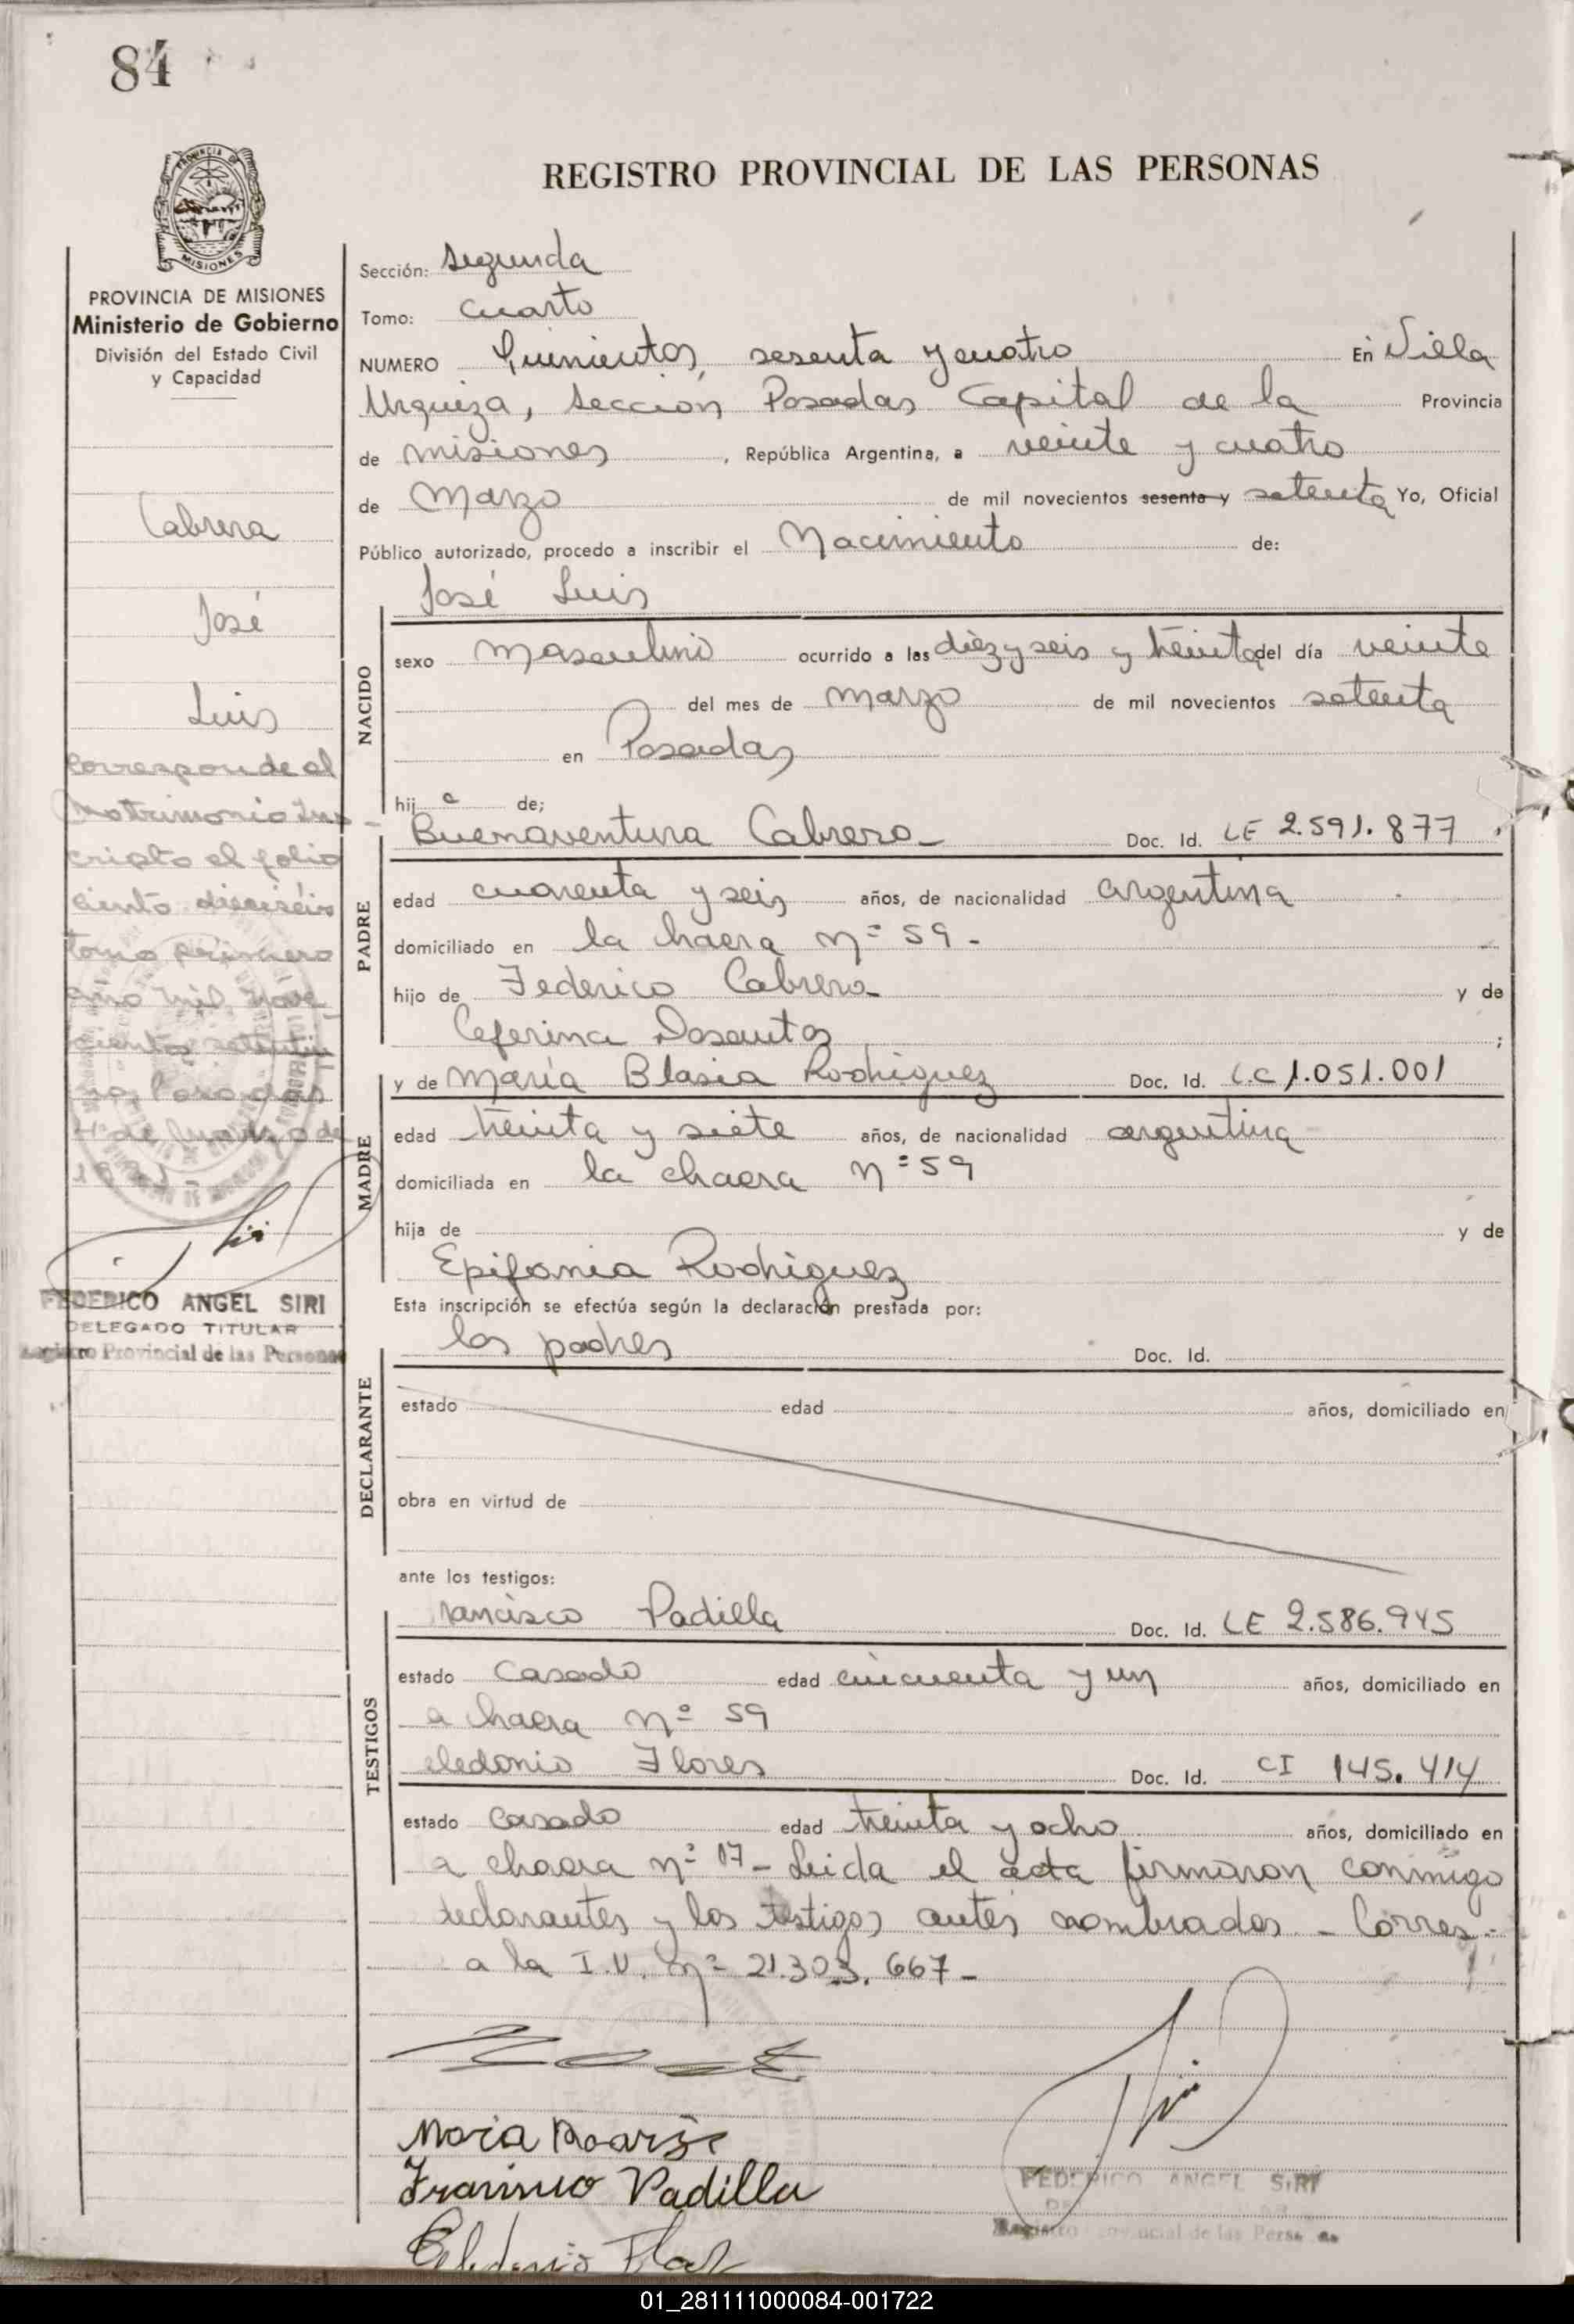 84
REGISTRO PROVINCIAL DE LAS PERSONAS
PROVINCIA DE MISIONES
Ministerio de Gobierno
División del Estado Civil
y Capacidad
Cabrera
José
Luis
Corresponde al
Matrimonio Ins-
cripto al folio
ciento dieciséis
tomo primero
año mil nove
cientos setentiu
no, Posadas
de
FEDERICO ANGEL SIRI
DELEGADO TITULAR
Registro Provincial de las Personas
Sección: Segunda
Tomo: Cuarto
NUMERO Quinientos, sesenta y cuatro En Villa
Urquiza, Sección Posadas Capital de la Provincia
de Misiones, República Argentina, a veinte y cuatro
de Marzo de mil novecientos sesenta y setenta Yo, Oficial
Público autorizado, procedo a inscribir el Nacimiento de:
José Luis
NACIDO
sexo Masculino ocurrido a las diez y seis y treinta del día veinte
del mes de marzo de mil novecientos setenta
en Posadas
hij o de;
Buenaventura Cabrera Doc. Id. LE 2.591.877
PADRE
edad cuarenta y seis años, de nacionalidad argentina
domiciliado en la chacra nº 59.
hijo de Federico Cabrera y de
Ceferina Dosantos;
y de María Blasia Rodriguez Doc. Id. L.C 1.051.001
MADRE
edad treinta y siete años, de nacionalidad argentina
domiciliada en la chacra nº 59
hija de y de
Epifania Rodriguez
Esta inscripción se efectúa según la declaración prestada por:
los padres Doc. Id.
DECLARANTE
estado edad años, domiciliado en
obra en virtud de
ante los testigos:
rancisco Padilla Doc. Id. LE 2.586.945
TESTIGOS
estado Casado edad cincuenta y un años, domiciliado en
a chacra nº 59
eledonio Flores Doc. Id. CI 145.414
estado Casado edad treinta y ocho años, domiciliado en
a chacra nº 17- Leida el acta firmaron conmigo
declarantes y los testigos antes nombrados - Corres.
a la I.U. nº 21.303.667-
Francisco Padilla
Celedonio Flores
FEDERICO ANGEL SIRI
Registro Provincial de las Personas
01_281111000084-001722